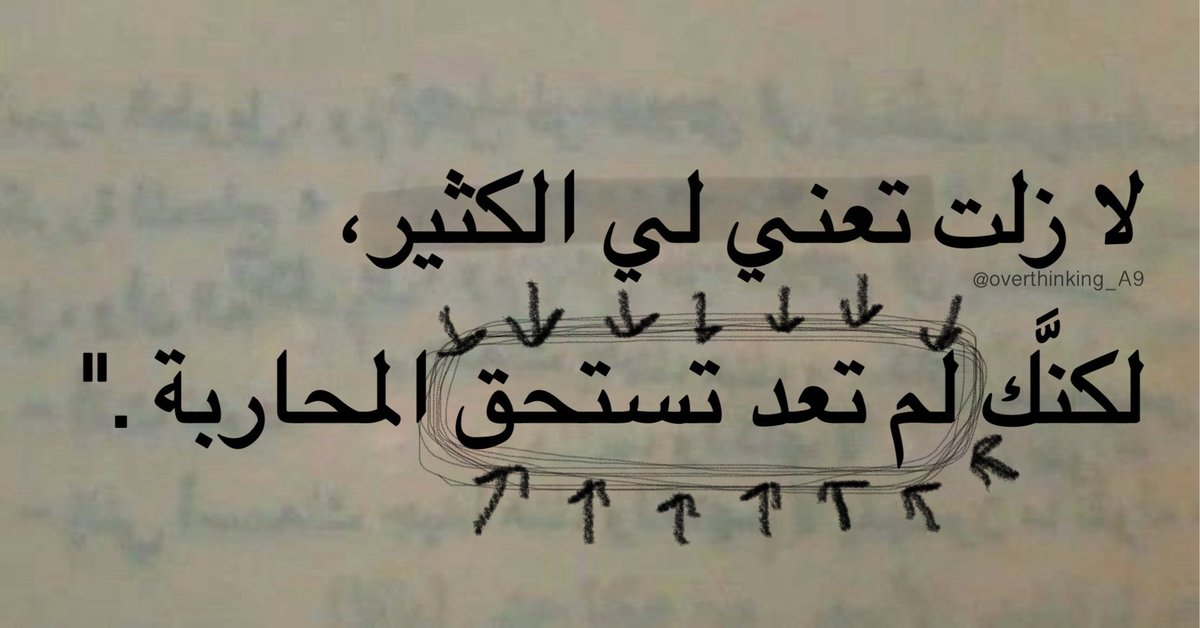 لا زلت تعني لي الكثير،
@overthinking_A9
لكنَّك لم تعد تستحق المحاربة ."